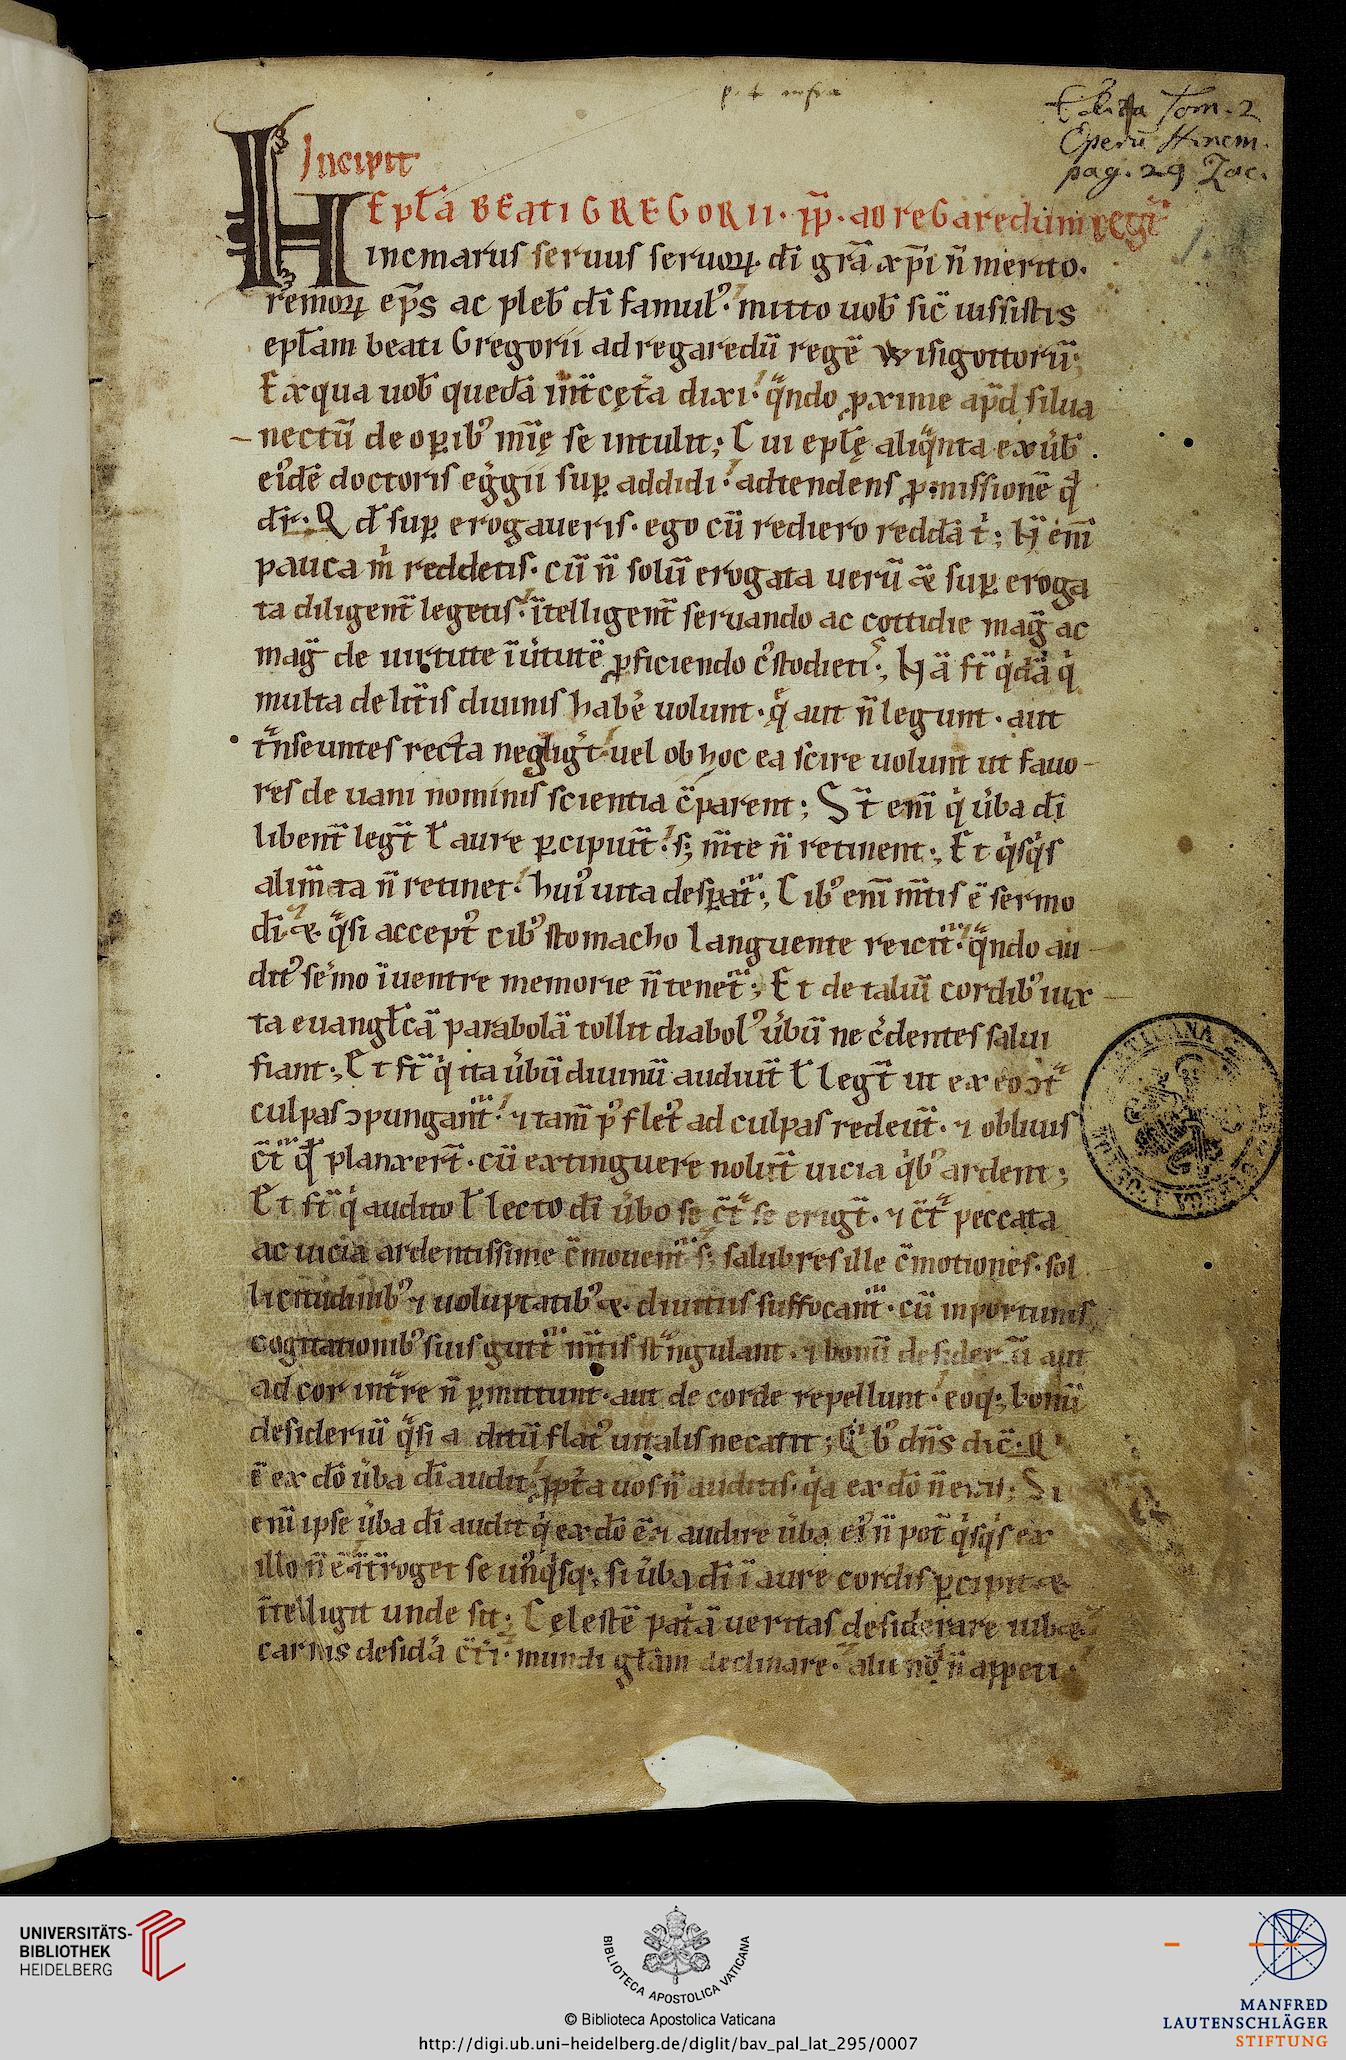 p. t infra
Edita Tom. 2
Operū Hincm.
pag. 29
Incipit
Epłā BEati GREGORII · p̄p · ad reGaredum regē
Hincmarus seruus seruoꝝ dī grā xp̄i n̄ merito ·
remoꝝ ep̄s ac pleb̄ dī famul᾽ · mitto uob̄ sic̄ iussistis
epłam beati Gregorii ad regaredū regē wisigottorū ;
Ex qua uob̄ quedā int̄cęt̄a dixi · qͣndo ꝓxime ap̄d silua
nectū de oꝑib᾽ mīę se intulit ; Cui epłę aliqͣnta ex ūb̄
ei᾽dē doctoris egͥgii suꝑ addidi · adtendens ꝓmissionē q̄
dr̄ · Qd̄ suꝑ erogaueris · ego cū rediero reddā tͥ ; H̄ enī
pauca mͥ reddetis · cū n̄ solū erogata uerū ǣ suꝑ eroga
ta diligent̄ legetis · ītelligent̄ seruando ac cottidie mag̅ ac
mag̅ de uirtute ī ūtutē ꝓficiendo c᾽stodieti᾽ ; H ā st̄ qͥdā qͥ
multa de litt̄is diuinis habe᾽ uolunt · q̄ aut n̄ legunt · aut
tͣnseuntes recta negligᷓt uel ob hoc ea scire uolunt ut fauo-
res de uani nominis scientia c̄parent ; St̄ enī qͥ ūba dī
libent̄ legt̄ ł aure ꝑcipiut̄ · sꝫ m̄te n̄ retinent ; Et qͥsqͥs
alim̄ta n̄ retinet · hui᾽ uita desꝑat̄ ; Cib᾽ enī m̄tis ē sermo
dī · æ · qͣsi accept᾽ cib᾽ stomacho languente reicit̄ · qͣndo au-
dit᾽ se᾽mo ī uentre memorie n̄ tenet̄ ; Et de taliū cordib᾽ iux-
ta euangłcā parabolā tollit diabol᾽ ūbū ne cͬdentes salui
fiant ; Et st̄ qͥ ita ūbū diuinū audiut̄ ł legt̄ ut ex eo ꝯt̄
culpas ꝯpungant̄ · ⁊ tam̄ p᾽ flet᾽ ad culpas redeut̄ · ⁊ obliuis
c̄t̄ q̄ planxert̄ · cū extinguere nolut̄ uicia qͥb᾽ ardent ;
Et st̄ qͥ audito ł lecto dī ūbo se c̄t̄ se erigt̄ · ⁊ c̄t̄ peccata
ac uicia ardentissime c̄mouent̄ · sꝫ salubres ille c̄motiones · sol
licitudinib᾽ ⁊ uoluptatib᾽ æ · diuitiis suffocant̄ · cū inportunis
cogitationib᾽ suis gutt̄ m̄tis stͣngulant · ⁊ bonū desideriū aut
ad cor intͣre n̄ ꝑmittunt · aut de corde repellunt · eoqꝫ bonū
desideriū qͣsi aditū flat᾽ uitalis necatit ; Qͥb᾽ dn̄s dic̄ · Qͥ
ē ex dō ūba dī audit · ꝓpt̄a uos n̄ auditis · qͥa ex dō n̄ estis ; Si
enī ipse ūba dī audit qͥ ex dō ē · ⁊ audire ūba ei᾽ n̄ pot̄ qͥsqͥs ex
illo n̄ ē · īt̄roget se un᾽qͥsqꝫ si ūba dī ī aure cordis ꝑcipit · æ
ītelligit unde sit ; Celestē patͥā ueritas desiderare iubæ ·
carnis desidͥa c̄tͥi · mundi głam declinare · alit nō n̄ appeti
VATICANA
UNIVERSITÄTS-
BIBLIOTHEK
HEIDELBERG
BIBLIOTECA APOSTOLICA VATICANA
© Biblioteca Apostolica Vaticana
http://digi.ub.uni-heidelberg.de/diglit/bav_pal_lat_295/0007
MANFRED
LAUTENSCHLÄGER
STIFTUNG